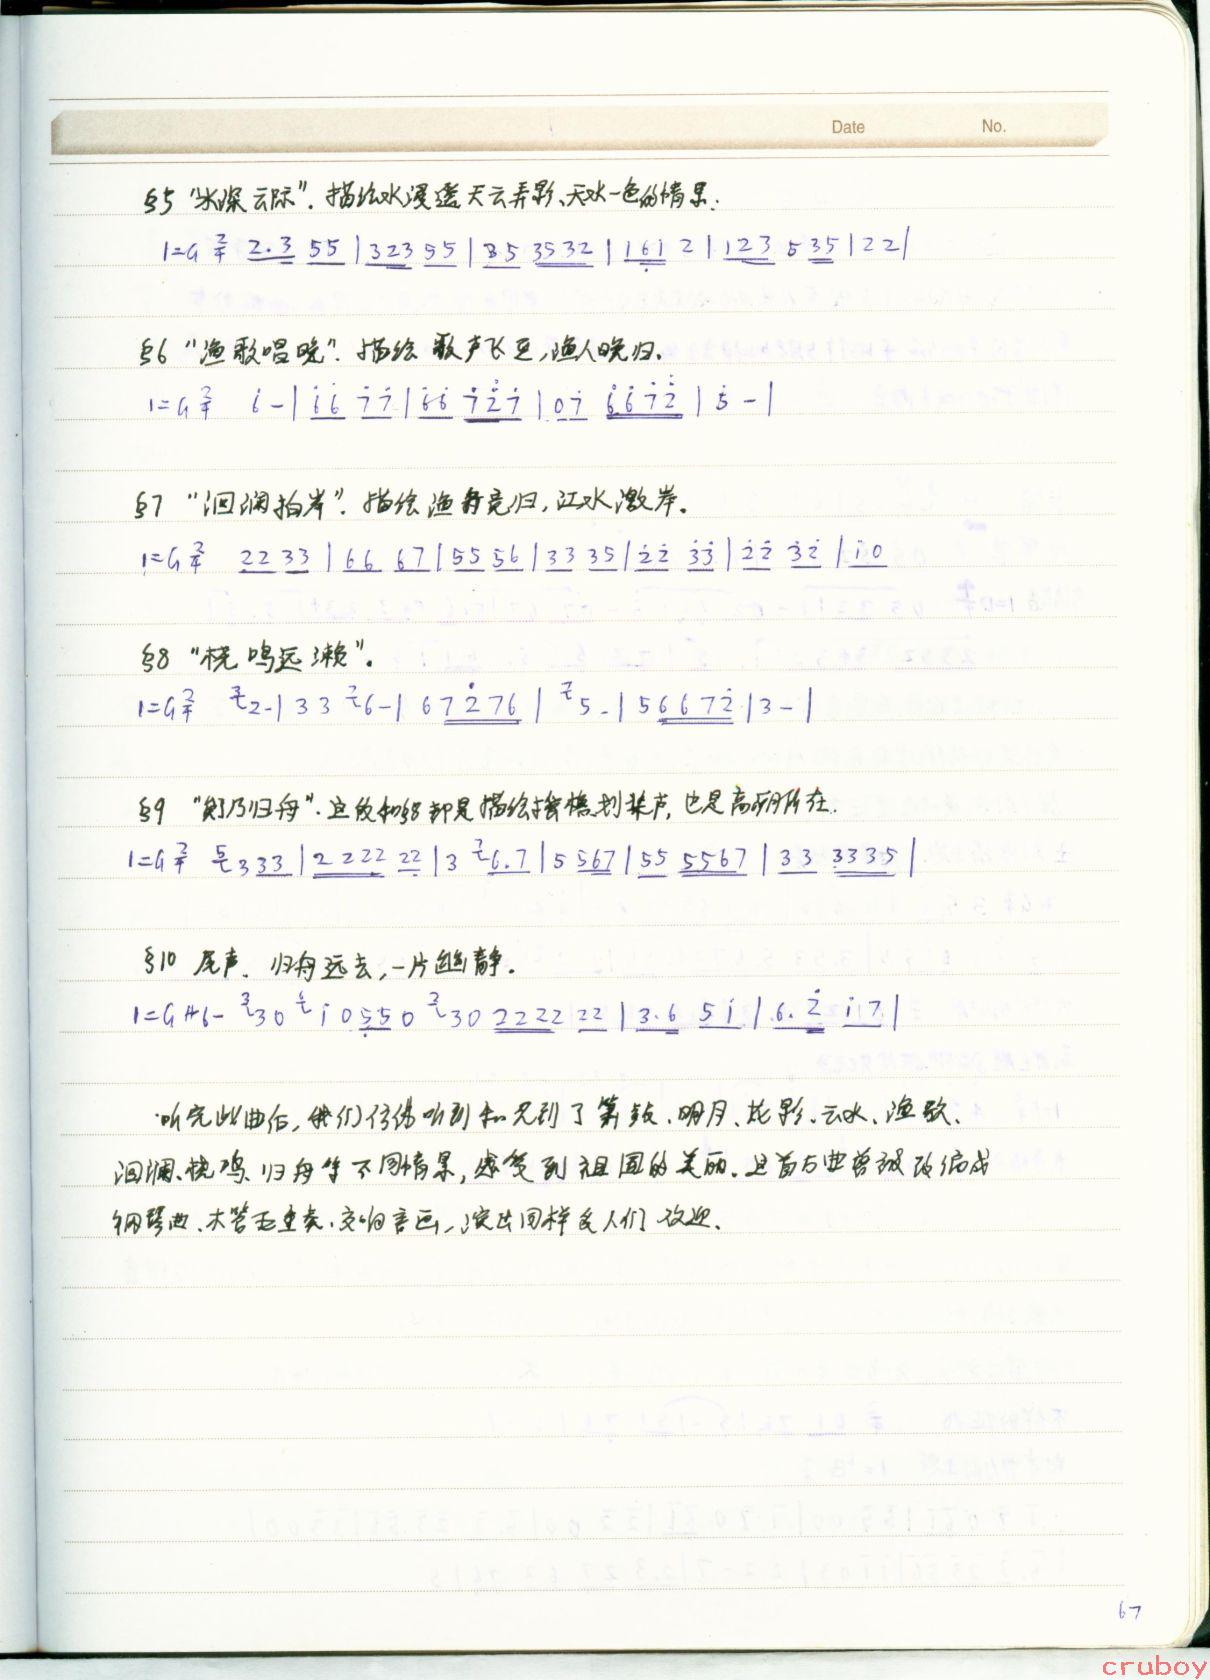 Date No.
§5 "水深云际". 描绘水浸遥天云弄影、天水一色的情景.
1=G 2/4 2.3 55 | 323 55 | 35 3532 | 161 2 | 123 5 35 | 22 |
§6 "渔歌唱晚". 描绘歌声飞至,渔人晚归.
1=G 2/4 6̇ - | 6̇6̇ 7̇7̇ | 6̇6̇ 7̇2̇7̇ | 07̇ 6̇6̇7̇2̇ | 5̇ - |
§7 "洄澜拍岸". 描绘渔舟竞归,江水激岸.
1=G 2/4 22 33 | 66 67 | 55 56 | 33 35 | 2̇2̇ 3̇3̇ | 2̇2̇ 3̇2̇ | 1̇0
§8 "桡鸣远濑".
1=G 2/4 2- | 33 6- | 6 7 2̇ 76 | 5 - | 5 6 6 7 2̇ | 3 - |
§9 "欸乃归舟". 这段和§8都是描绘摇橹划桨声,也是高潮所在.
1=G 2/4 3 33 | 2222 22 | 3 6.7 | 5 567 | 55 5567 | 33 3335 |
§10 尾声. 归舟远去,一片幽静.
1=G 30 1̇0 550 30 2222 22 | 3.6 51̇ | 6.2̇ 1̇7 |
听完此曲后,我们仿佛听到和见到了箫鼓、明月、花影、云水、渔歌、
洄澜、桡鸣、归舟等不同情景,感觉到祖国的美丽.这首古曲曾被改编成
钢琴曲、木管五重奏、交响音画,演出同样受人们欢迎.
67
cruboy